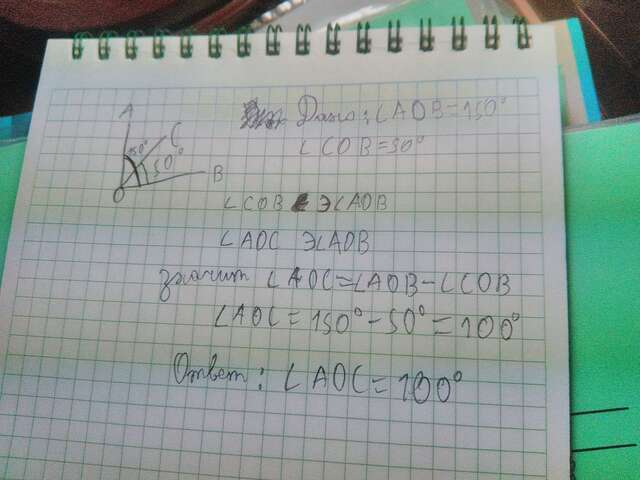 A
150°
C
50°
B
O
Дано: ∠AOB=150°
∠COB=50°
∠COB Э∠AOB
∠AOC Э∠AOB
значит ∠AOC=∠AOB-∠COB
∠AOC=150°-50°=100°
Ответ: ∠AOC=100°